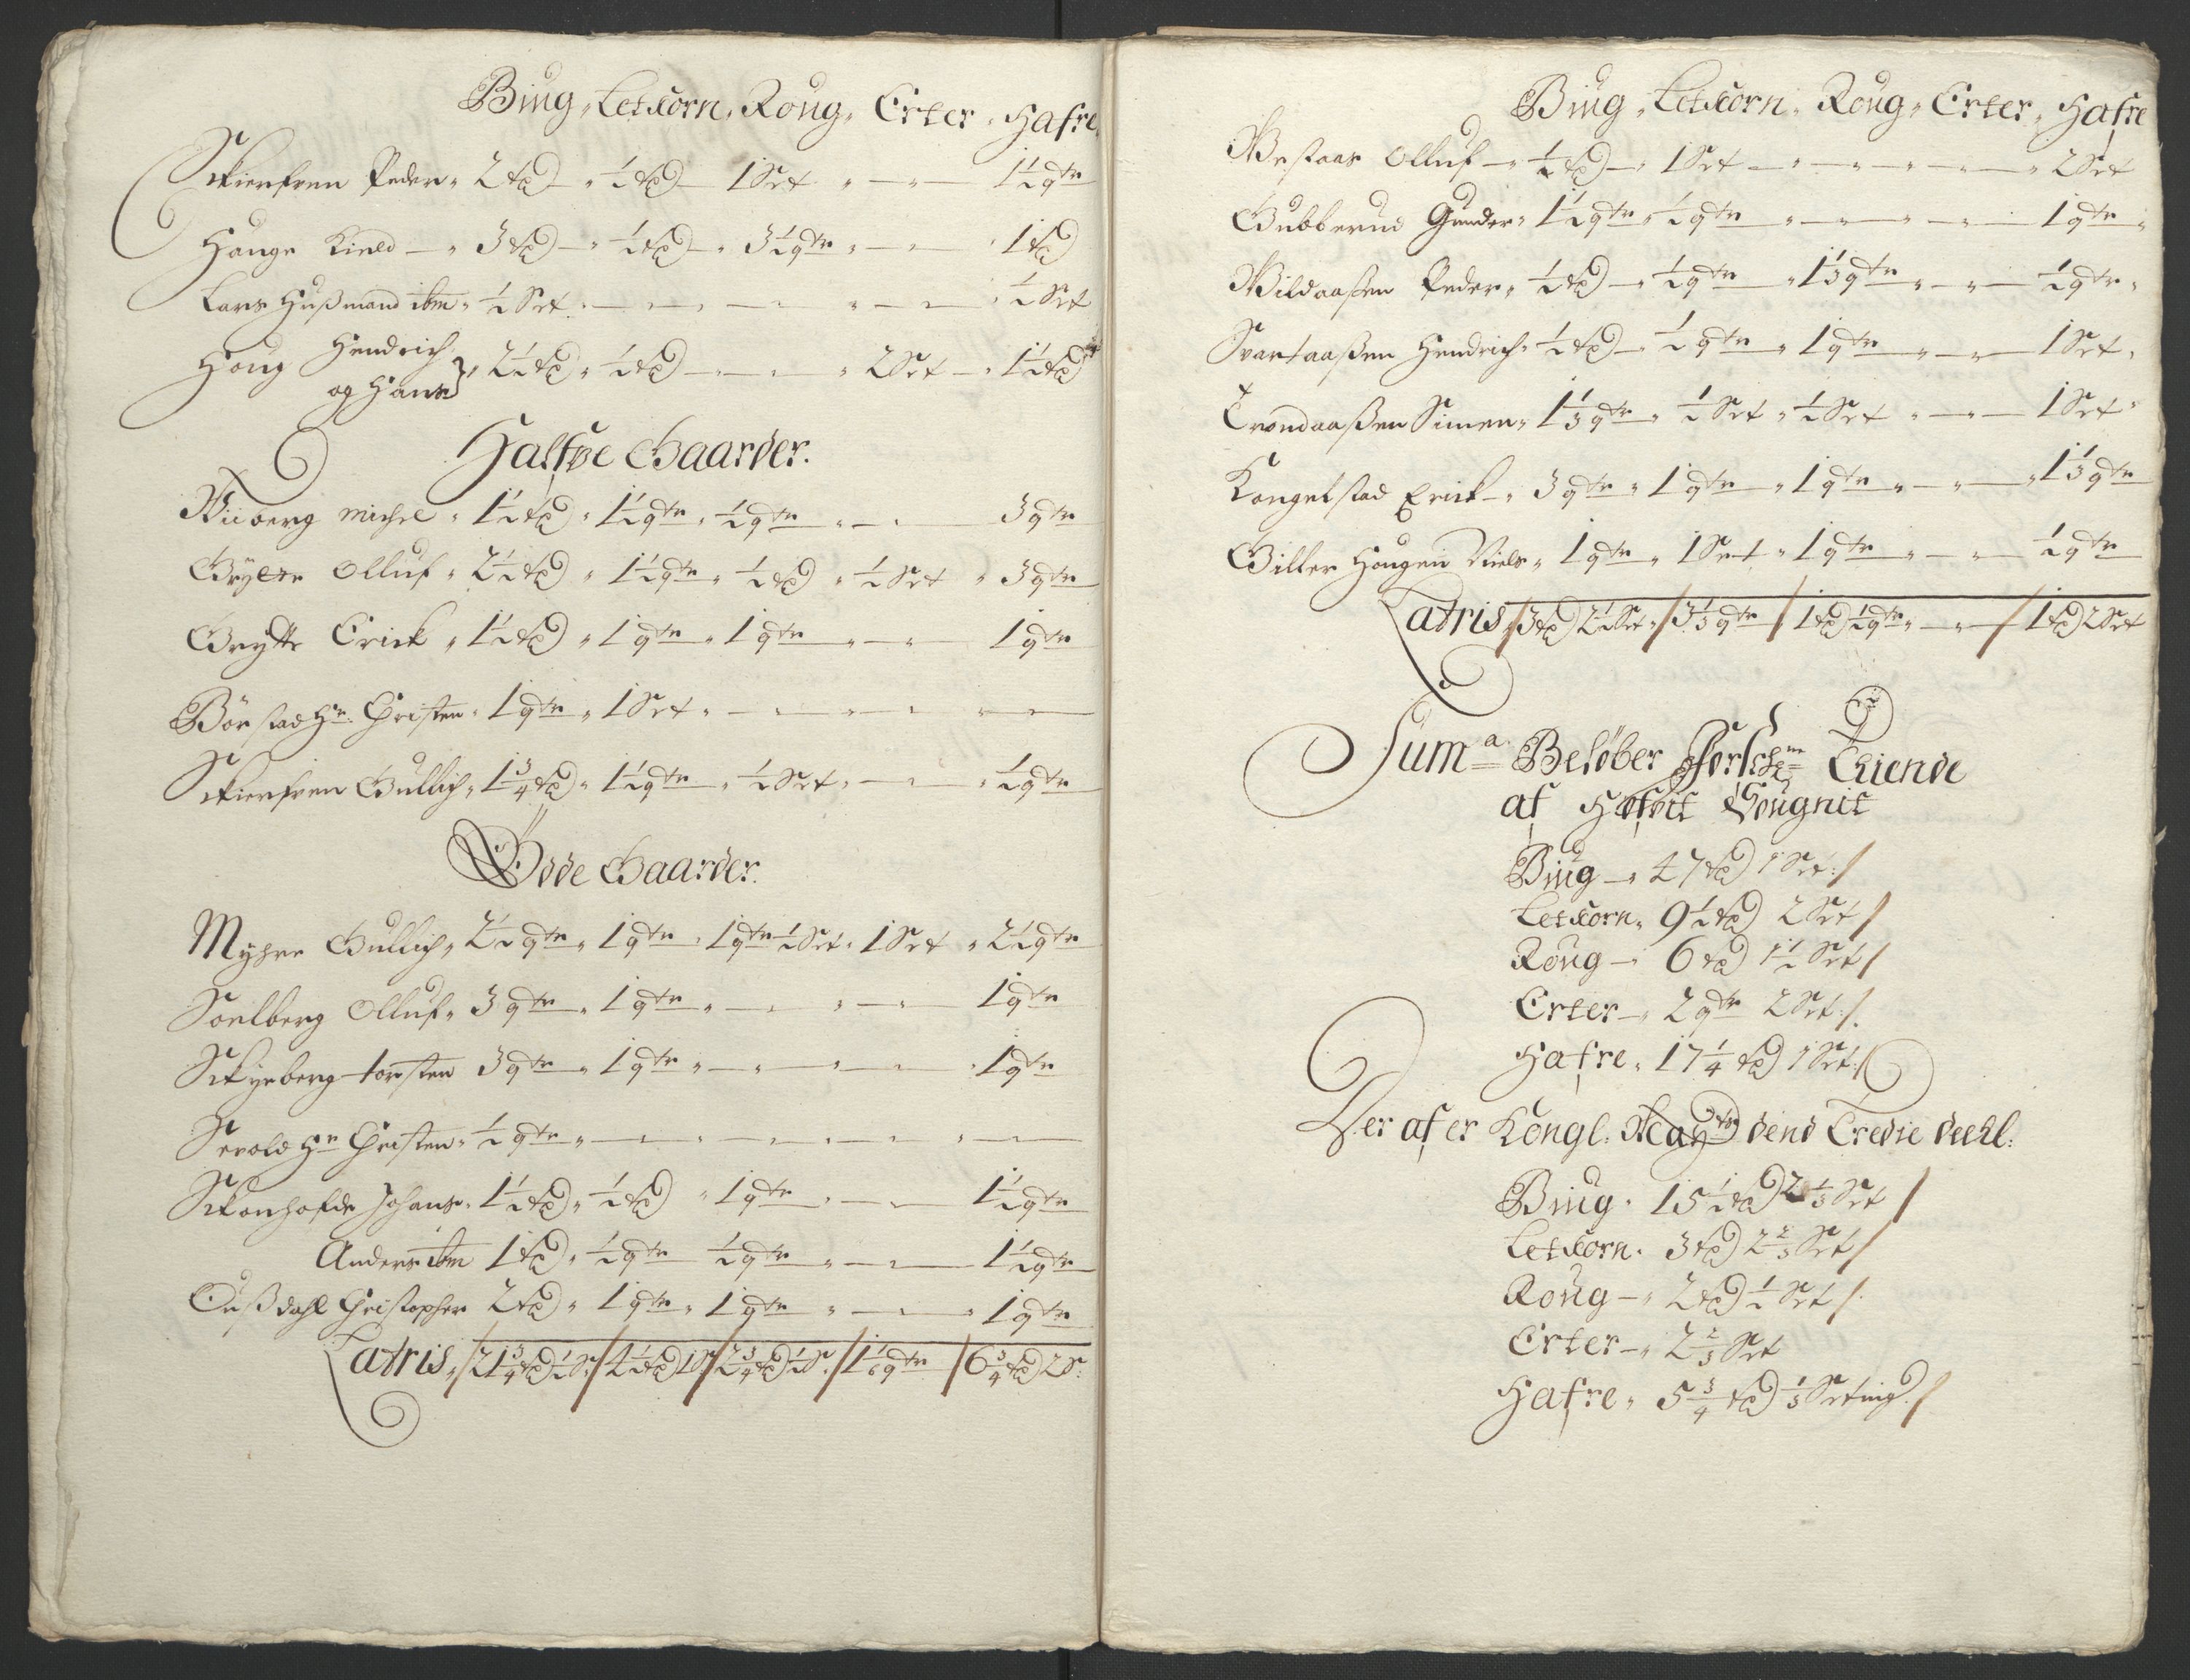 Biug, Letkorn, Roug, Erter, Hafre,
Skierfven Peder, 2 td - ½ td - 1 Set " - " 1½ qtr
Houge Kield - 3 td - ½ td - 3½ qtr " - " 1 td
Lars Hußmand ibm, ½ Set - - - - ½ Set
Houg Hendrich og Hans, 2½ td, ½ td - - 2 Set - 1½ td
Halfve Gaarder.
Wiiberg Michel, 1½ td, 1½ qtr, ½ qtr, - 3 qtr
Grytte Olluf, 2½ td, 1½ qtr, ½ td, ½ Set, 3 qtr
Grytte Erick, 1½ td, 1 qtr, 1 qtr, - 1 qtr
Börstad Hr. Christen, 1 qtr, 1 Set, - - - -
Skierfven Gullich, 1¾ td, 1½ qtr, ½ Set, - ½ qtr
Øde Gaarder.
Myhre Gullich, 2½ qtr, 1 qtr, 1 qtr ½ Set, 1 Set, 2½ qtr
Soelberg Olluf, 3 qtr, 1 qtr, - - 1 qtr
Skyeberg Torsten 3 qtr, 1 qtr, - - 1 qtr
Hr Christen, ½ qtr, - - - -
Skonhofde Johans, 1½ td, ½ td, 1 qtr, - 1½ qtr
Anders ibm 1 td, ½ qtr ½ qtr, - 1½ qtr
Christopher 2 td, 1 qtr, 1 qtr, - 1 qtr
Latris, / 21¾ td ½ S. / 4½ td 1 S / 2¾ td ½ S. / 1⅙ qtr / 6¾ td 2 S.
Biug, Letkorn, Roug, Erter, Hafre
Westaas Olluf - ½ td - 1 Set - - - 2 Set
Gubberud Gunder, 1½ qtr, ½ qtr, - - - 1 qtr,
Wildaaßen Peder, ½ td - ½ qtr, 1⅓ qtr, - ½ qtr,
Svartaaßen Hendrich, ½ td - ½ qtr, 1 qtr, - 1 Set,
Trondaaßen Simen, 1⅓ qtr, ½ Set, ½ Set, - 1 Set
Kongelstad Erick - 3 qtr, 1 qtr, 1 qtr, - 1⅓ qtr
Giller Hougen Niels, 1 qtr, 1 Set, 1 qtr, - ½ qtr
Latris, / 3 td 2½ Set, / 3⅓ qtr / 1 td ½ qtr, - / 1 td 2 Set
Suma Beløber Tiende
af Hofvit Sougnit
Biug - 47 td 1 Set: /
Letkorn, 9½ td 2 Set /
Roug - 6 td 1½ Set /
Erter - 2 qtr 2 Set: /.
Hafre, 17¼ td 1 Set: /
Der af er Kongl: Maytz dend Tredie deehl:
Biug. 15½ td 2⅓ Set /
Letkorn. 3 td 2⅔ Set /
Roug - 2 td ½ Set /.
Erter - 2⅔ Set
Hafre, 5¾ td ⅓ Seting. /